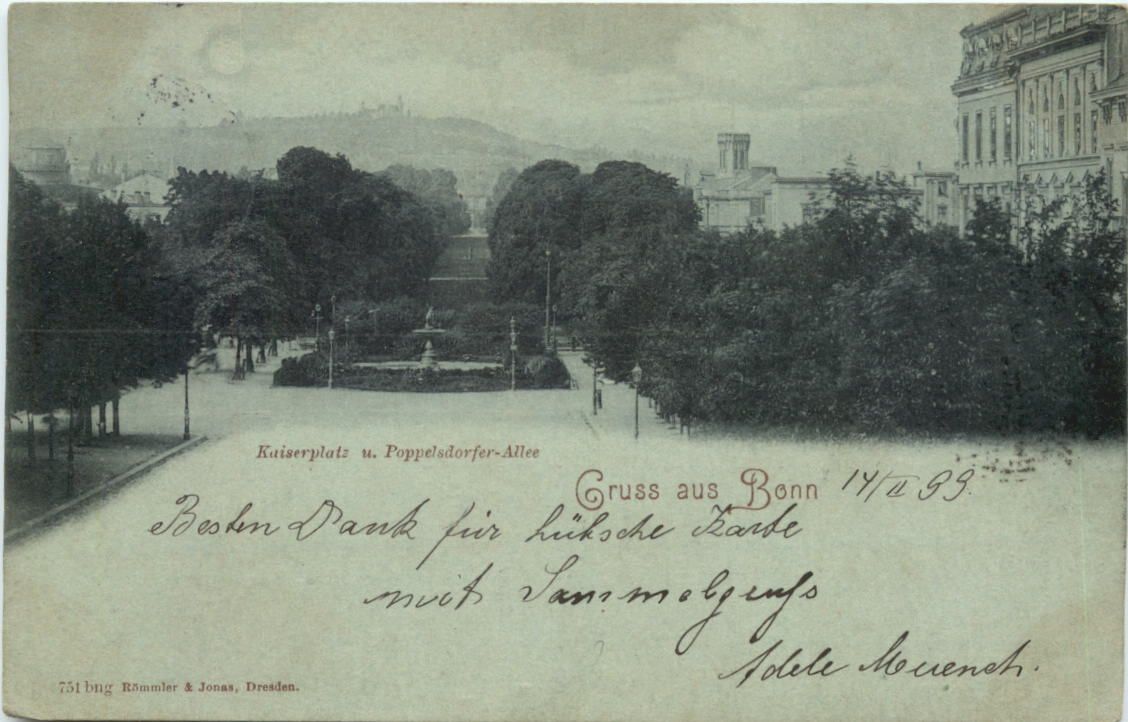 Kaiserplatz u. Poppelsdorfer-Allee
Gruss aus Bonn 14/II 99.
Besten Dank für hübsche Karte
mit Sammelgruß
Adele Muench.
751 bng Römmler & Jonas, Dresden.